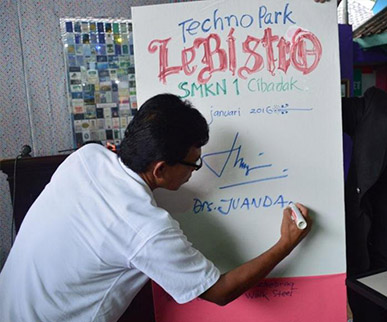 Techno Park
LeBistrO
SMKN 1 Cibadak
januari 2016
Drs. JUANDA